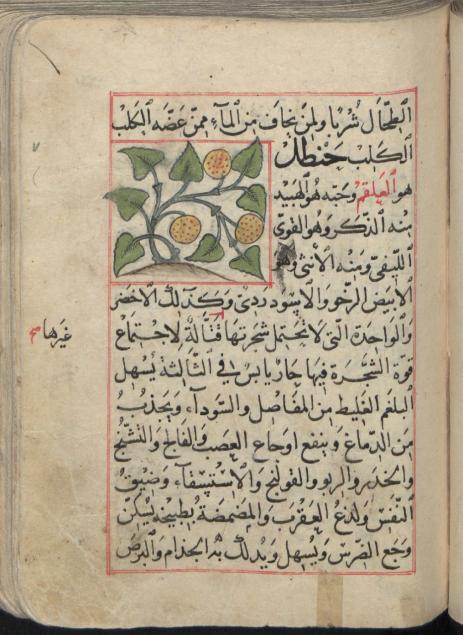 الطحال شربا ولمن يخاف من المآء ممن عضه الكلب
الكلب حنظل
هو العلقم وحبه هو الهبيد
منه الذكر وهو القوى
الليفى ومنه الأنثى وهو
الابيض الرخو والاسود ردئ وكذلك الاخضر
والواحدة التى لا تحتمل شجرتها قتالة لاجتماع
غيرها صح
قوة الشجرة فيها حار يابس في الثالثة يسهل
البلغم الغليظ من المفاصل والسودآء ويجذب
من الدماغ وينفع اوجاع العصب والفالج والتشنج
والخدر والربو والقولنج والاستسقآء وضيق
النفس ولدغ العقرب والمضمضة بطبيخه يسكن
وجع الضرس ويسهل ويدلك به الجذام والبرص